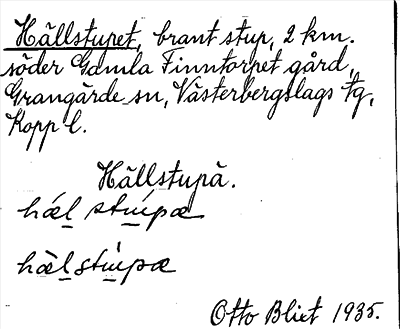 Hällstupet, brant stup, 2 km.
söder Gamla Finntorpet gård,
Grangärde sn, Västerbergslags tg,
Kopp l.
Hällstupä.
hæl stupæ
hæl stupæ
Otto Blixt 1935.